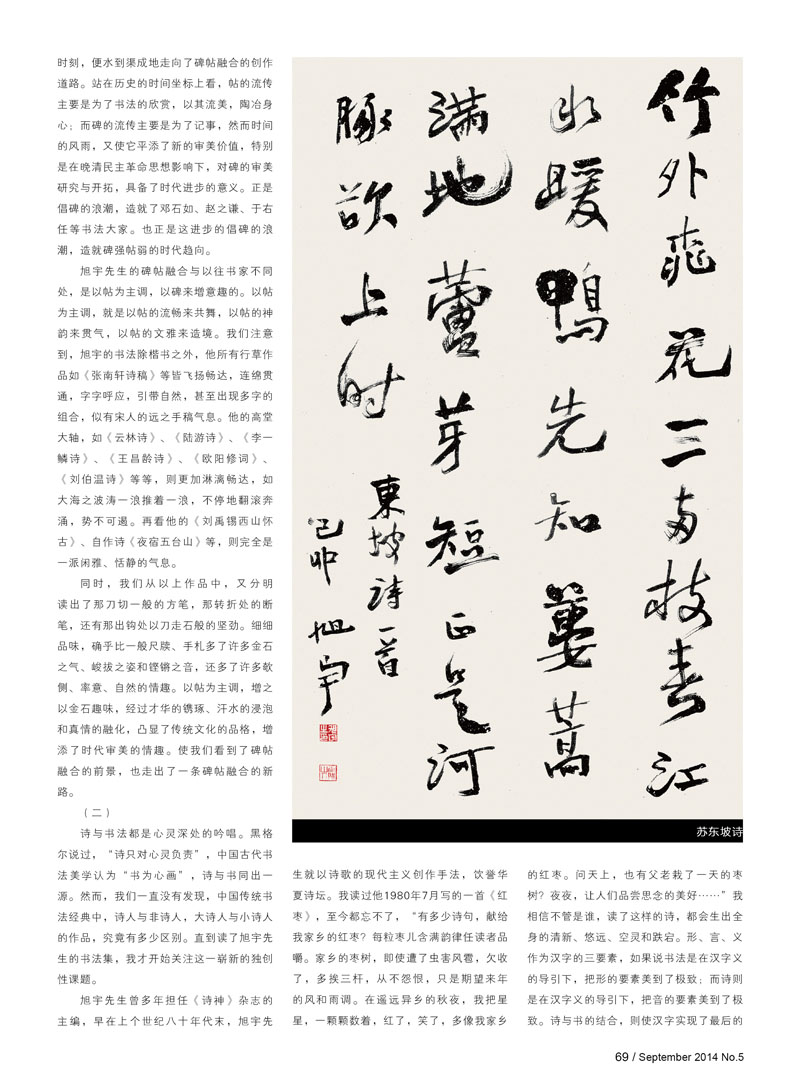 时刻，便水到渠成地走向了碑帖融合的创作
道路。站在历史的时间坐标上看，帖的流传
主要是为了书法的欣赏，以其流美，陶冶身
心；而碑的流传主要是为了记事，然而时间
的风雨，又使它平添了新的审美价值，特别
是在晚清民主革命思想影响下，对碑的审美
研究与开拓，具备了时代进步的意义。正是
倡碑的浪潮，造就了邓石如、赵之谦、于右
任等书法大家。也正是这进步的倡碑的浪
潮，造就碑强帖弱的时代趋向。
旭宇先生的碑帖融合与以往书家不同
处，是以帖为主调，以碑来增意趣的。以帖
为主调，就是以帖的流畅来共舞，以帖的神
韵来贯气，以帖的文雅来造境。我们注意
到，旭宇的书法除楷书之外，他所有行草作
品如《张南轩诗稿》等皆飞扬畅达，连绵贯
通，字字呼应，引带自然，甚至出现多字的
组合，似有宋人的远之手稿气息。他的高堂
大轴，如《云林诗》、《陆游诗》、《李一
鳞诗》、《王昌龄诗》、《欧阳修词》、
《刘伯温诗》等等，则更加淋漓畅达，如
大海之波涛一浪推着一浪，不停地翻滚奔
涌，势不可遏。再看他的《刘禹锡西山怀
古》、自作诗《夜宿五台山》等，则完全是
一派闲雅、恬静的气息。
同时，我们从以上作品中，又分明
读出了那刀切一般的方笔，那转折处的断
笔，还有那出钩处以刀走石般的坚劲。细细
品味，确乎比一般尺牍、手札多了许多金石
之气、峻拔之姿和铿锵之音，还多了许多欹
侧、率意、自然的情趣。以帖为主调，增之
以金石趣味，经过才华的镌琢、汗水的浸泡
和真情的融化，凸显了传统文化的品格，增
添了时代审美的情趣。使我们看到了碑帖
融合的前景，也走出了一条碑帖融合的新
路。
（二）
诗与书法都是心灵深处的吟唱。黑格
尔说过，“诗只对心灵负责”，中国古代书
法美学认为“书为心画”，诗与书同出一
源。然而，我们一直没有发现，中国传统书
法经典中，诗人与非诗人，大诗人与小诗人
的作品，究竟有多少区别。直到读了旭宇先
生的书法集，我才开始关注这一崭新的独创
性课题。
旭宇先生曾多年担任《诗神》杂志的
主编，早在上个世纪八十年代末，旭宇先
竹外桃花三两枝春江
水暖鸭先知蒌蒿
满地蘆芽短正是河
豚欲上时
東坡诗一首
己卯 旭宇
苏东坡诗
生就以诗歌的现代主义创作手法，饮誉华
夏诗坛。我读过他1980年7月写的一首《红
枣》，至今都忘不了，“有多少诗句，献给
我家乡的红枣？每粒枣儿含满韵律任读者品
嚼。家乡的枣树，即使遭了虫害风雹，欠收
了，多挨三杆，从不怨恨，只是期望来年
的风和雨调。在遥远异乡的秋夜，我把星
星，一颗颗数着，红了，笑了，多像我家乡
的红枣。问天上，也有父老栽了一天的枣
树？夜夜，让人们品尝思念的美好……”我
相信不管是谁，读了这样的诗，都会生出全
身的清新、悠远、空灵和跌宕。形、言、义
作为汉字的三要素，如果说书法是在汉字义
的导引下，把形的要素美到了极致；而诗则
是在汉字义的导引下，把音的要素美到了极
致。诗与书的结合，则使汉字实现了最后的
69 / September 2014 No.5